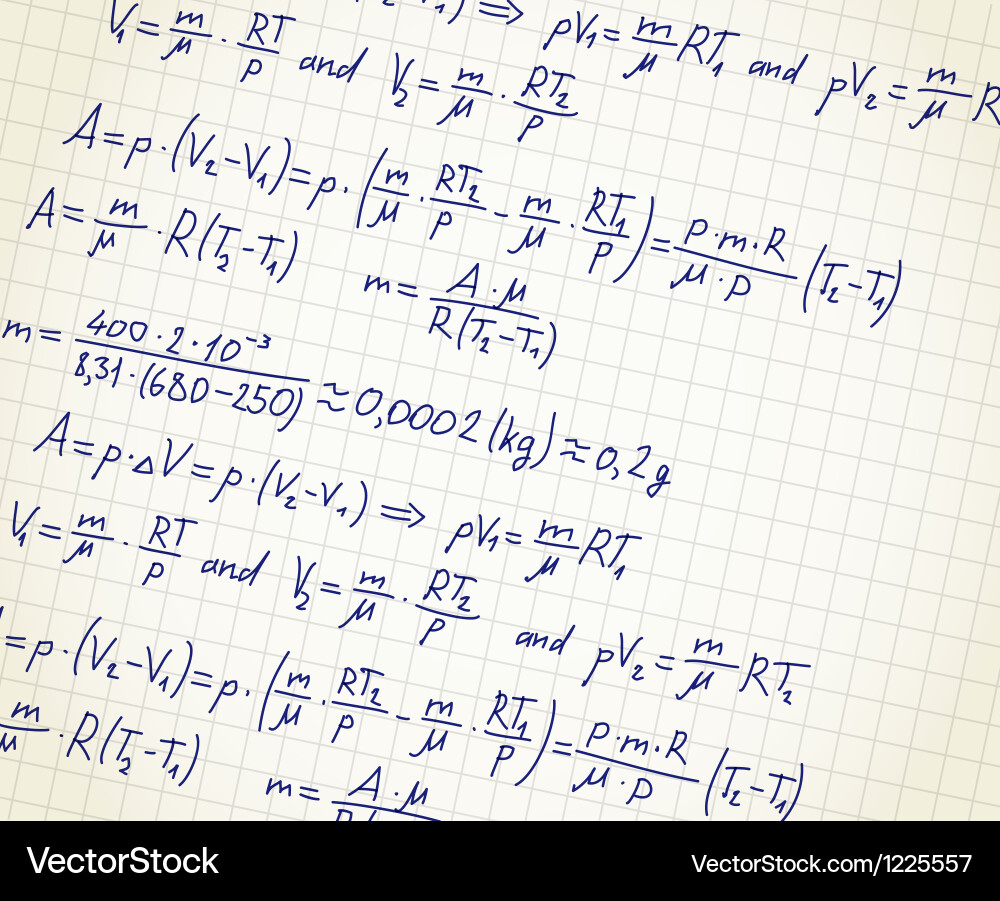 V₁) ⟹ pV₁ = m/μ RT₁ and pV₂ = m/μ R
V₁ = m/μ · RT/p and V₂ = m/μ · RT₂/p
A = p · (V₂ – V₁) = p · (m/μ · RT₂/p – m/μ · RT₁/p) = p · m · R/μ · p (T₂ – T₁)
A = m/μ · R(T₂ – T₁) m = A · μ/R(T₂ – T₁)
m = 400 · 2 · 10⁻³/8,31 · (680 – 250) ≈ 0,0002 (kg) ≈ 0,2g
A = p · ΔV = p · (V₂ – V₁) ⟹ pV₁ = m/μ RT₁
V₁ = m/μ · RT/p and V₂ = m/μ · RT₂/p and pV₂ = m/μ RT₂
= p · (V₂ – V₁) = p · (m/μ · RT₂/p – m/μ · RT₁/p) = p · m · R/μ · p (T₂ – T₁)
m/μ · R(T₂ – T₁) m = A · μ
VectorStock VectorStock.com/1225557